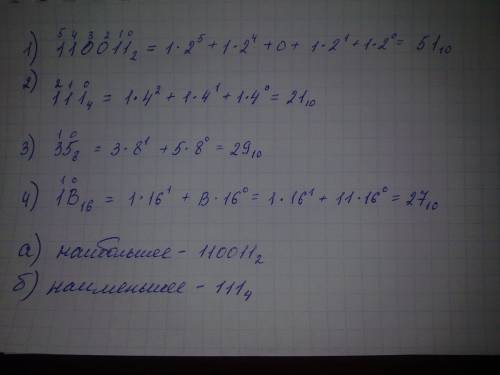 5 4 3 2 1 0
1) 110011₂ = 1·2⁵ + 1·2⁴ + 0 + 1·2¹ + 1·2⁰ = 51₁₀
2) 2 1 0
111₄ = 1·4² + 1·4¹ + 1·4⁰ = 21₁₀
1 0
3) 35₈ = 3·8¹ + 5·8⁰ = 29₁₀
1 0
4) 1B₁₆ = 1·16¹ + B·16⁰ = 1·16¹ + 11·16⁰ = 27₁₀
а) наибольшее - 110011₂
б) наименьшее - 111₄